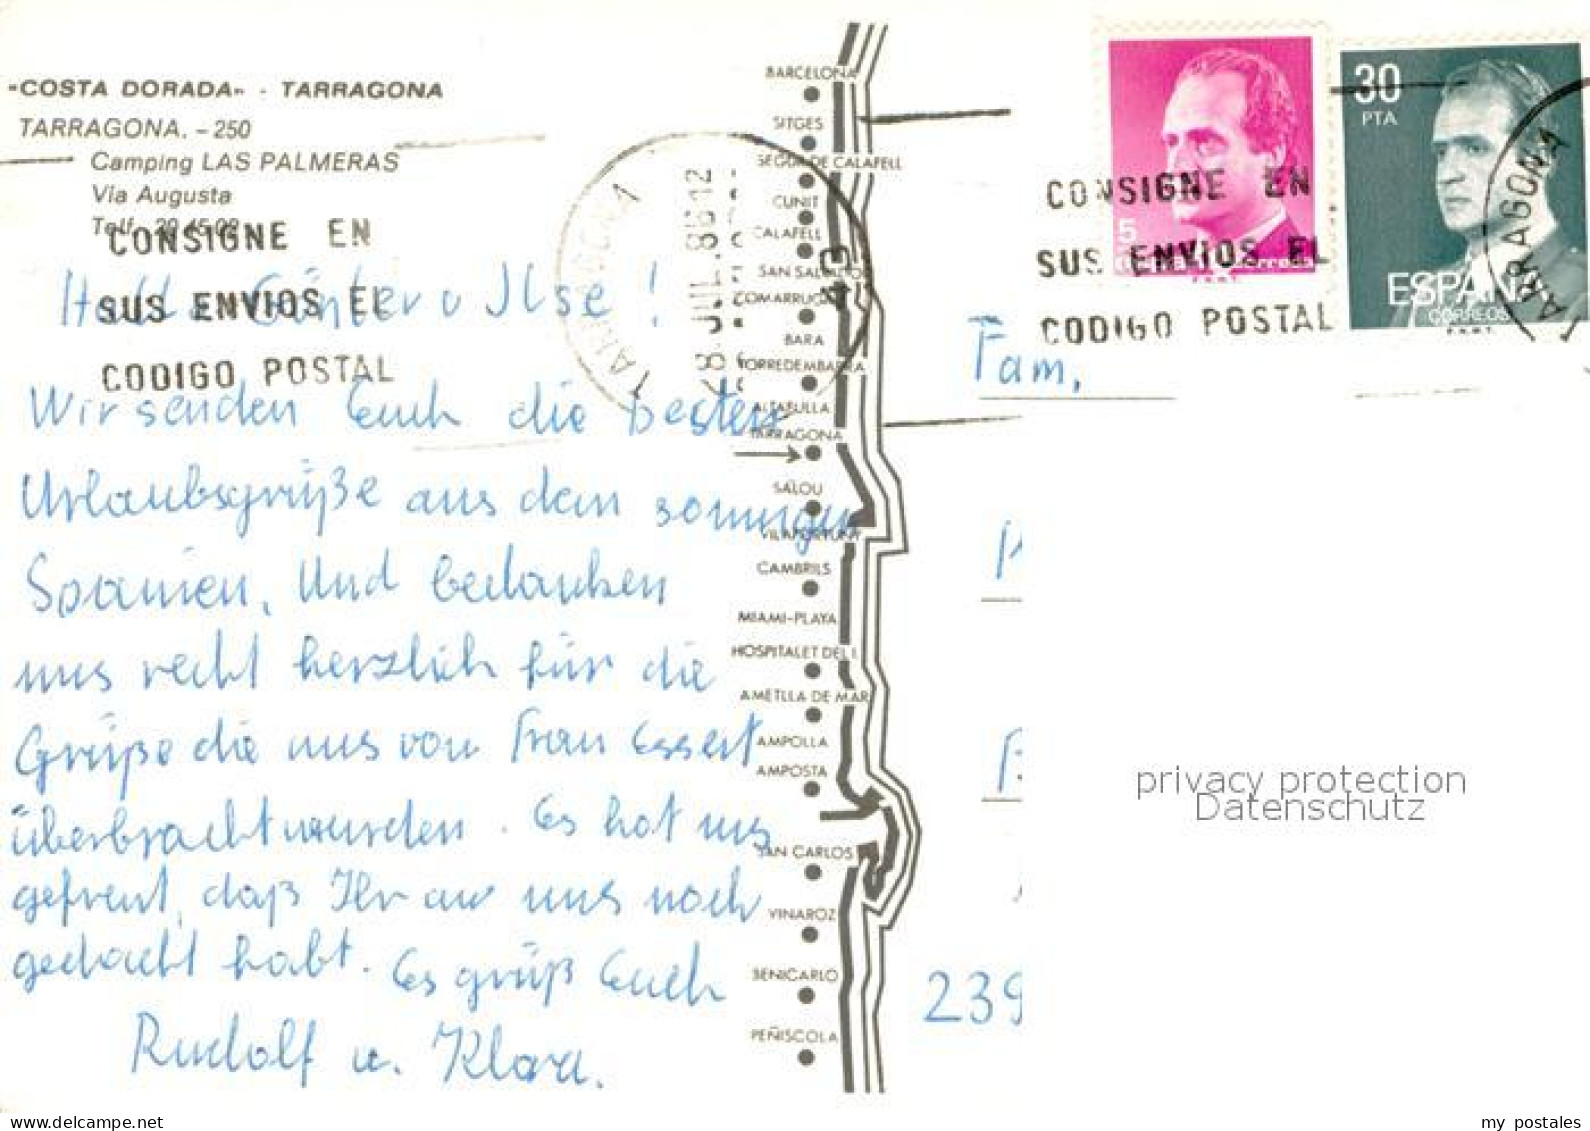 «COSTA DORADA» - TARRAGONA
TARRAGONA. - 250
Camping LAS PALMERAS
Via Augusta
Telf.
CONSIGNE EN
SUS ENVIOS EL
CODIGO POSTAL
Hallo Günter u Ilse!
Wir senden Euch die besten
Urlaubsgrüße aus dem sonnigen
Spanien, Und bedanken
uns recht herzlich für die
Grüße die uns von Frau Essert
überbracht wurden. Es hat uns
gefreut, daß Ihr an uns noch
gedacht habt. Es grüß Euch
Rudolf u. Klara.
BARCELONA
SITGES
SEGUR DE CALAFELL
CUNIT
CALAFELL
SAN SALVADOR
COMARRUGA
BARA
TORREDEMBARRA
ALTAFULLA
TARRAGONA
SALOU
VILAFORTUNY
CAMBRILS
MIAMI-PLAYA
HOSPITALET DEL I.
AMETLLA DE MAR
AMPOLLA
AMPOSTA
SAN CARLOS
VINAROZ
BENICARLO
PEÑISCOLA
TARRAGONA
JUL. 86 12
43
5
España Correos
F.N.M.T.
30
PTA
ESPAÑA
CORREOS
F.N.M.T.
TARRAGONA
CONSIGNE EN
SUS ENVIOS EL
CODIGO POSTAL
Fam.
239
privacy protection
Datenschutz
www.ansichtskartenversand.com
my postales